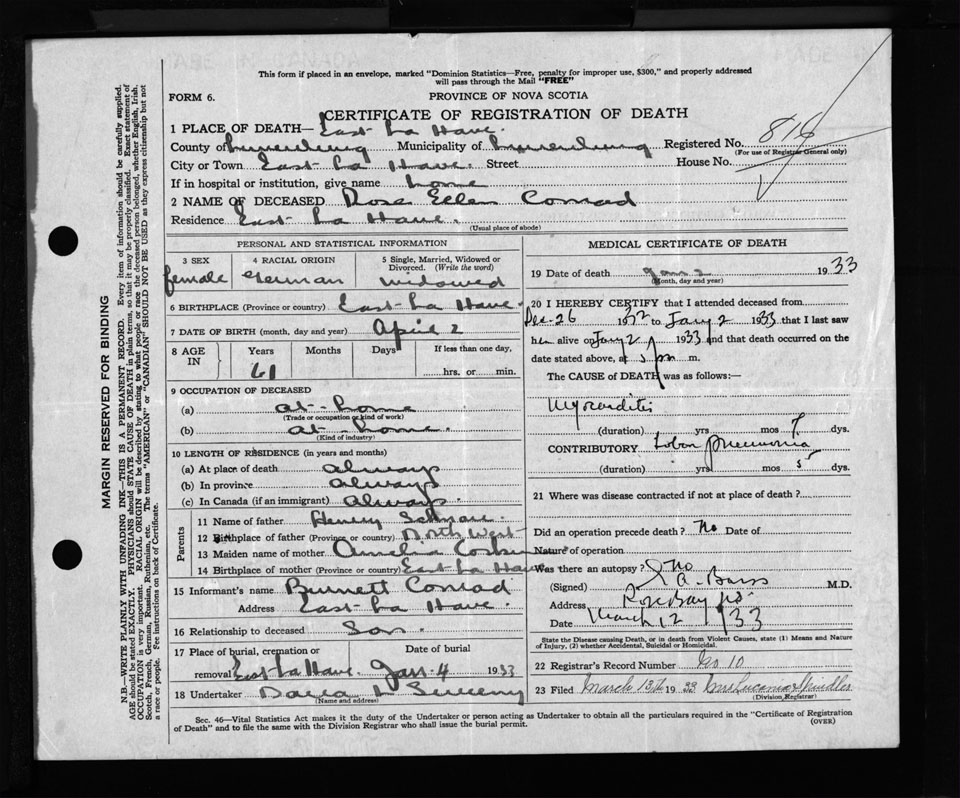 This form if placed in an envelope, marked "Dominion Statistics—Free, penalty for improper use, $300," and properly addressed
will pass through the Mail "FREE"
FORM 6.
PROVINCE OF NOVA SCOTIA
CERTIFICATE OF REGISTRATION OF DEATH
1 PLACE OF DEATH— East La Have.
County of Lunenburg Municipality of Lunenburg Registered No. 816
(For use of Registrar General only)
City or Town East La Have. Street House No.
If in hospital or institution, give name home
2 NAME OF DECEASED Rose Ellen Conrad
Residence East La Have.
(Usual place of abode)
PERSONAL AND STATISTICAL INFORMATION
3 SEX 4 RACIAL ORIGIN 5 Single, Married, Widowed or
Divorced. (Write the word)
female German widowed
6 BIRTHPLACE (Province or country) East La Have.
7 DATE OF BIRTH (month, day and year) April 2
8 AGE IN Years Months Days If less than one day,
61 hrs. or min.
9 OCCUPATION OF DECEASED
(a) at home
(Trade or occupation or kind of work)
(b) at home.
(Kind of industry)
10 LENGTH OF RESIDENCE (in years and months)
(a) At place of death always
(b) In province always
(c) In Canada (if an immigrant) always.
Parents
11 Name of father Henry
12 Birthplace of father (Province or country) North West
13 Maiden name of mother Amelia
14 Birthplace of mother (Province or country) East La Have
15 Informant's name Burnett Conrad
Address East La Have.
16 Relationship to deceased Son.
17 Place of burial, cremation or Date of burial
removal East La Have. Jan. 4 1933
18 Undertaker
(Name and address)
MEDICAL CERTIFICATE OF DEATH
19 Date of death Jan 2 1933
(Month, day and year)
20 I HEREBY CERTIFY that I attended deceased from
Dec. 26 1932 to Jany 2 1933 that I last saw
her alive on Jany 2 1933 and that death occurred on the
date stated above, at 5 pm m.
The CAUSE of DEATH was as follows:—
Myocarditis
(duration) yrs mos 7 dys.
CONTRIBUTORY Lobar pneumonia
(duration) yrs mos 5 dys.
21 Where was disease contracted if not at place of death?
Did an operation precede death? No Date of
Nature of operation
Was there an autopsy? No
(Signed) M.D.
Address Rose Bay
Date March 12 /33
State the Disease causing Death, or in death from Violent Causes, state (1) Means and Nature
of Injury, (2) whether Accidental, Suicidal or Homicidal.
22 Registrar's Record Number No 10
23 Filed March 13th 1933 Mrs Spindler
(Division Registrar)
Sec. 46—Vital Statistics Act makes it the duty of the Undertaker or person acting as Undertaker to obtain all the particulars required in the "Certificate of Registration
of Death" and to file the same with the Division Registrar who shall issue the burial permit. (OVER)
MARGIN RESERVED FOR BINDING
N.B.—WRITE PLAINLY WITH UNFADING INK—THIS IS A PERMANENT RECORD. Every item of information should be carefully supplied.
AGE should be stated EXACTLY. PHYSICIANS should STATE CAUSE OF DEATH in plain terms, so that it may be properly classified. Exact statement of
OCCUPATION is very important. RACIAL ORIGIN will be described by stating to what people or race the deceased person belonged, whether English, Irish,
Scotch, French, German, Russian, Ruthenian, etc. The terms "AMERICAN" or "CANADIAN" SHOULD NOT BE USED as they express citizenship but not
a race or people. Fee instructions on back of Certificate.